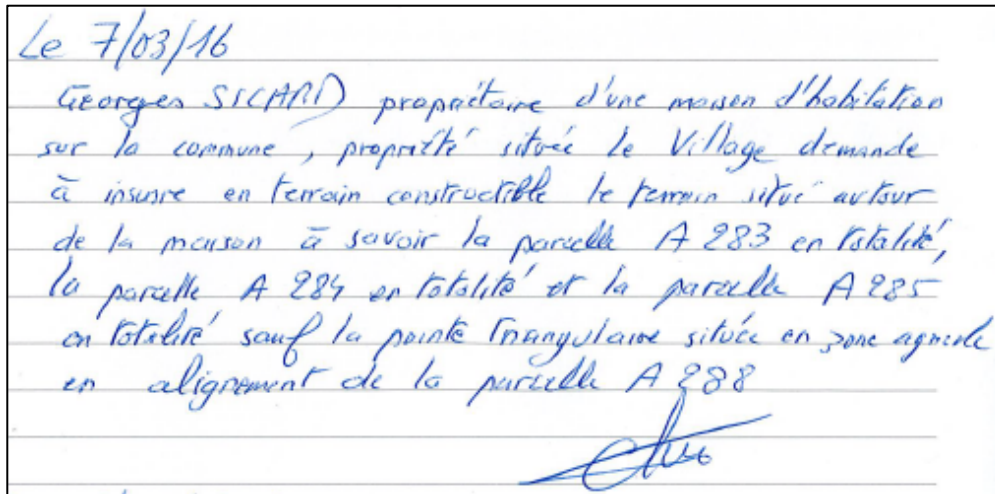 Le 7/03/16
Georges SICARD propriétaire d'une maison d'habitation
sur la commune, propriété située le Village demande
à inscrire en terrain constructible le terrain situé autour
de la maison à savoir la parcelle A 283 en totalité,
la parcelle A 284 en totalité et la parcelle A 285
en totalité sauf la pointe triangulaire située en zone agricole
en alignement de la parcelle A 288